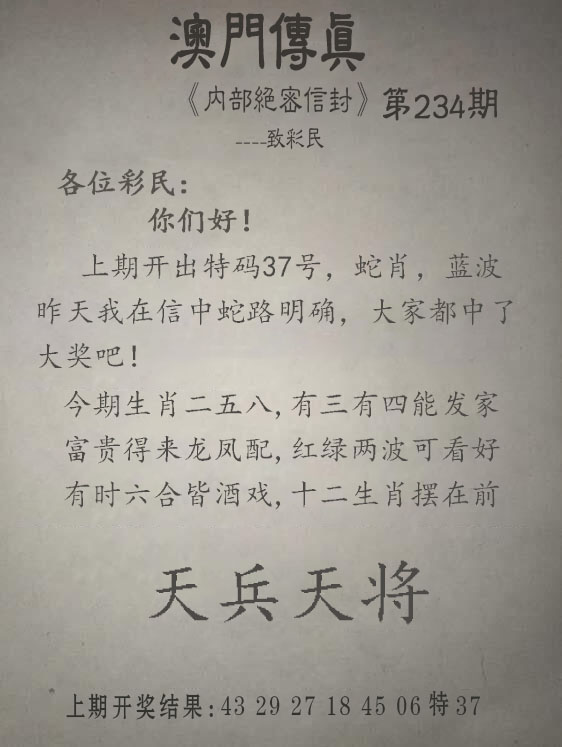 澳門傳真
《内部絕密信封》第234期
----致彩民
各位彩民：
你们好！
上期开出特码37号，蛇肖，蓝波
昨天我在信中蛇路明确，大家都中了
大奖吧！
今期生肖二五八,有三有四能发家
富贵得来龙凤配,红绿两波可看好
有时六合皆酒戏,十二生肖摆在前
天兵天将
上期开奖结果:43 29 27 18 45 06 特 37